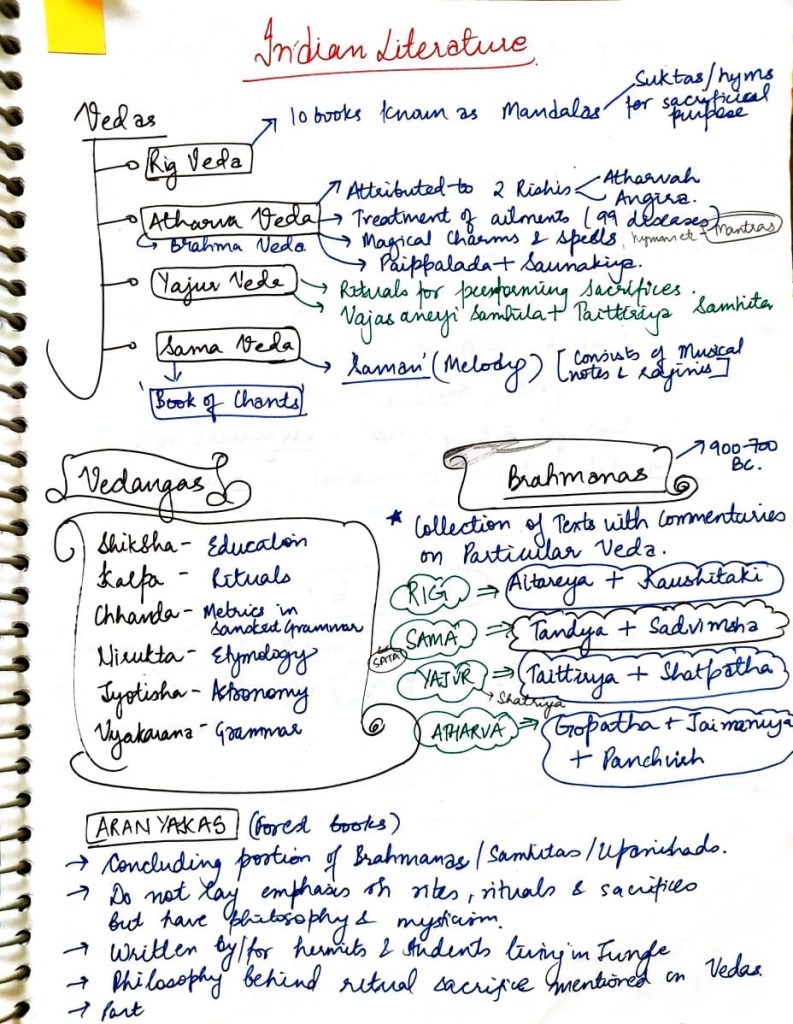 Indian Literature
Vedas
10 books known as Mandalas
Suktas/hyms
for sacrificial
purpose
Rig Veda
Atharva Veda
Brahma Veda
Attributed to 2 Rishis
Atharvah
Angira.
Treatment of ailments (99 diseases)
Magical Charms & spells,
Mantras
Paippalada + Saunakiya.
Yajur Veda
Rituals for performing sacrifices.
Vajasaneyi Samhita + Taittiriya Samhita
Sama Veda
'Saman' (Melody) [Consists of Musical
notes & raginis]
'Book of Chants'
Vedangas
Shiksha - Education
Kalpa - Rituals
Chhanda - Metrics in
Sanskrit Grammar
Nirukta - Etymology
Jyotisha - Astronomy
Vyakarana - Grammar
Brahmanas
900-700
BC.
* Collection of Texts with Commentaries
on Particular Veda.
RIG ⇒ Aitareya + Kaushitaki
SAMA ⇒ Tandya + Sadvimsha
SATA
YAJUR ⇒ Taittiriya + Shatpatha
Shatriya
ATHARVA ⇒ Gopatha + Jaimaniya
+ Panchvish
ARANYAKAS (Forest books)
→ Concluding portion of Brahmanas/Samhitas/Upanishads.
→ Do not lay emphasis on rites, rituals & sacrifices
but have philosophy & mysticism.
→ Written by/for hermits & students living in Jungle
→ Philosophy behind ritual sacrifice mentioned in Vedas
→ Part